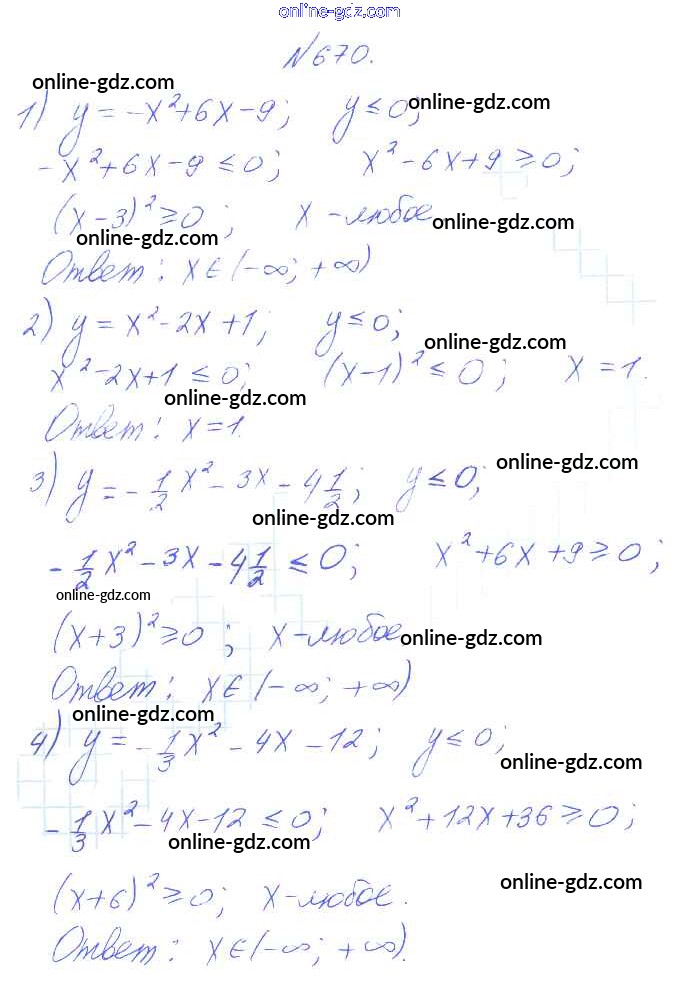 online-gdz.com
№670.
online-gdz.com
1) y = -x²+6x-9; y ≤ 0; online-gdz.com
-x²+6x-9 ≤ 0; x²-6x+9 ≥ 0;
(x-3)² ≥ 0; x - любое online-gdz.com
online-gdz.com
Ответ: x∈(-∞; +∞)
2) y = x²-2x+1; y ≤ 0;
online-gdz.com
x²-2x+1 ≤ 0; (x-1)² ≤ 0; x = 1.
online-gdz.com
Ответ: x = 1.
3) y = -1/2 x² - 3x - 4 1/2; y ≤ 0;
online-gdz.com
online-gdz.com
-1/2 x² - 3x - 4 1/2 ≤ 0; x²+6x+9 ≥ 0;
online-gdz.com
(x+3)² ≥ 0; x-любое online-gdz.com
Ответ: x∈(-∞; +∞)
online-gdz.com
4) y = -1/3 x² - 4x - 12; y ≤ 0;
online-gdz.com
-1/3 x² - 4x - 12 ≤ 0; x²+12x+36 ≥ 0;
online-gdz.com
(x+6)² ≥ 0; x-любое. online-gdz.com
Ответ: x∈(-∞; +∞).